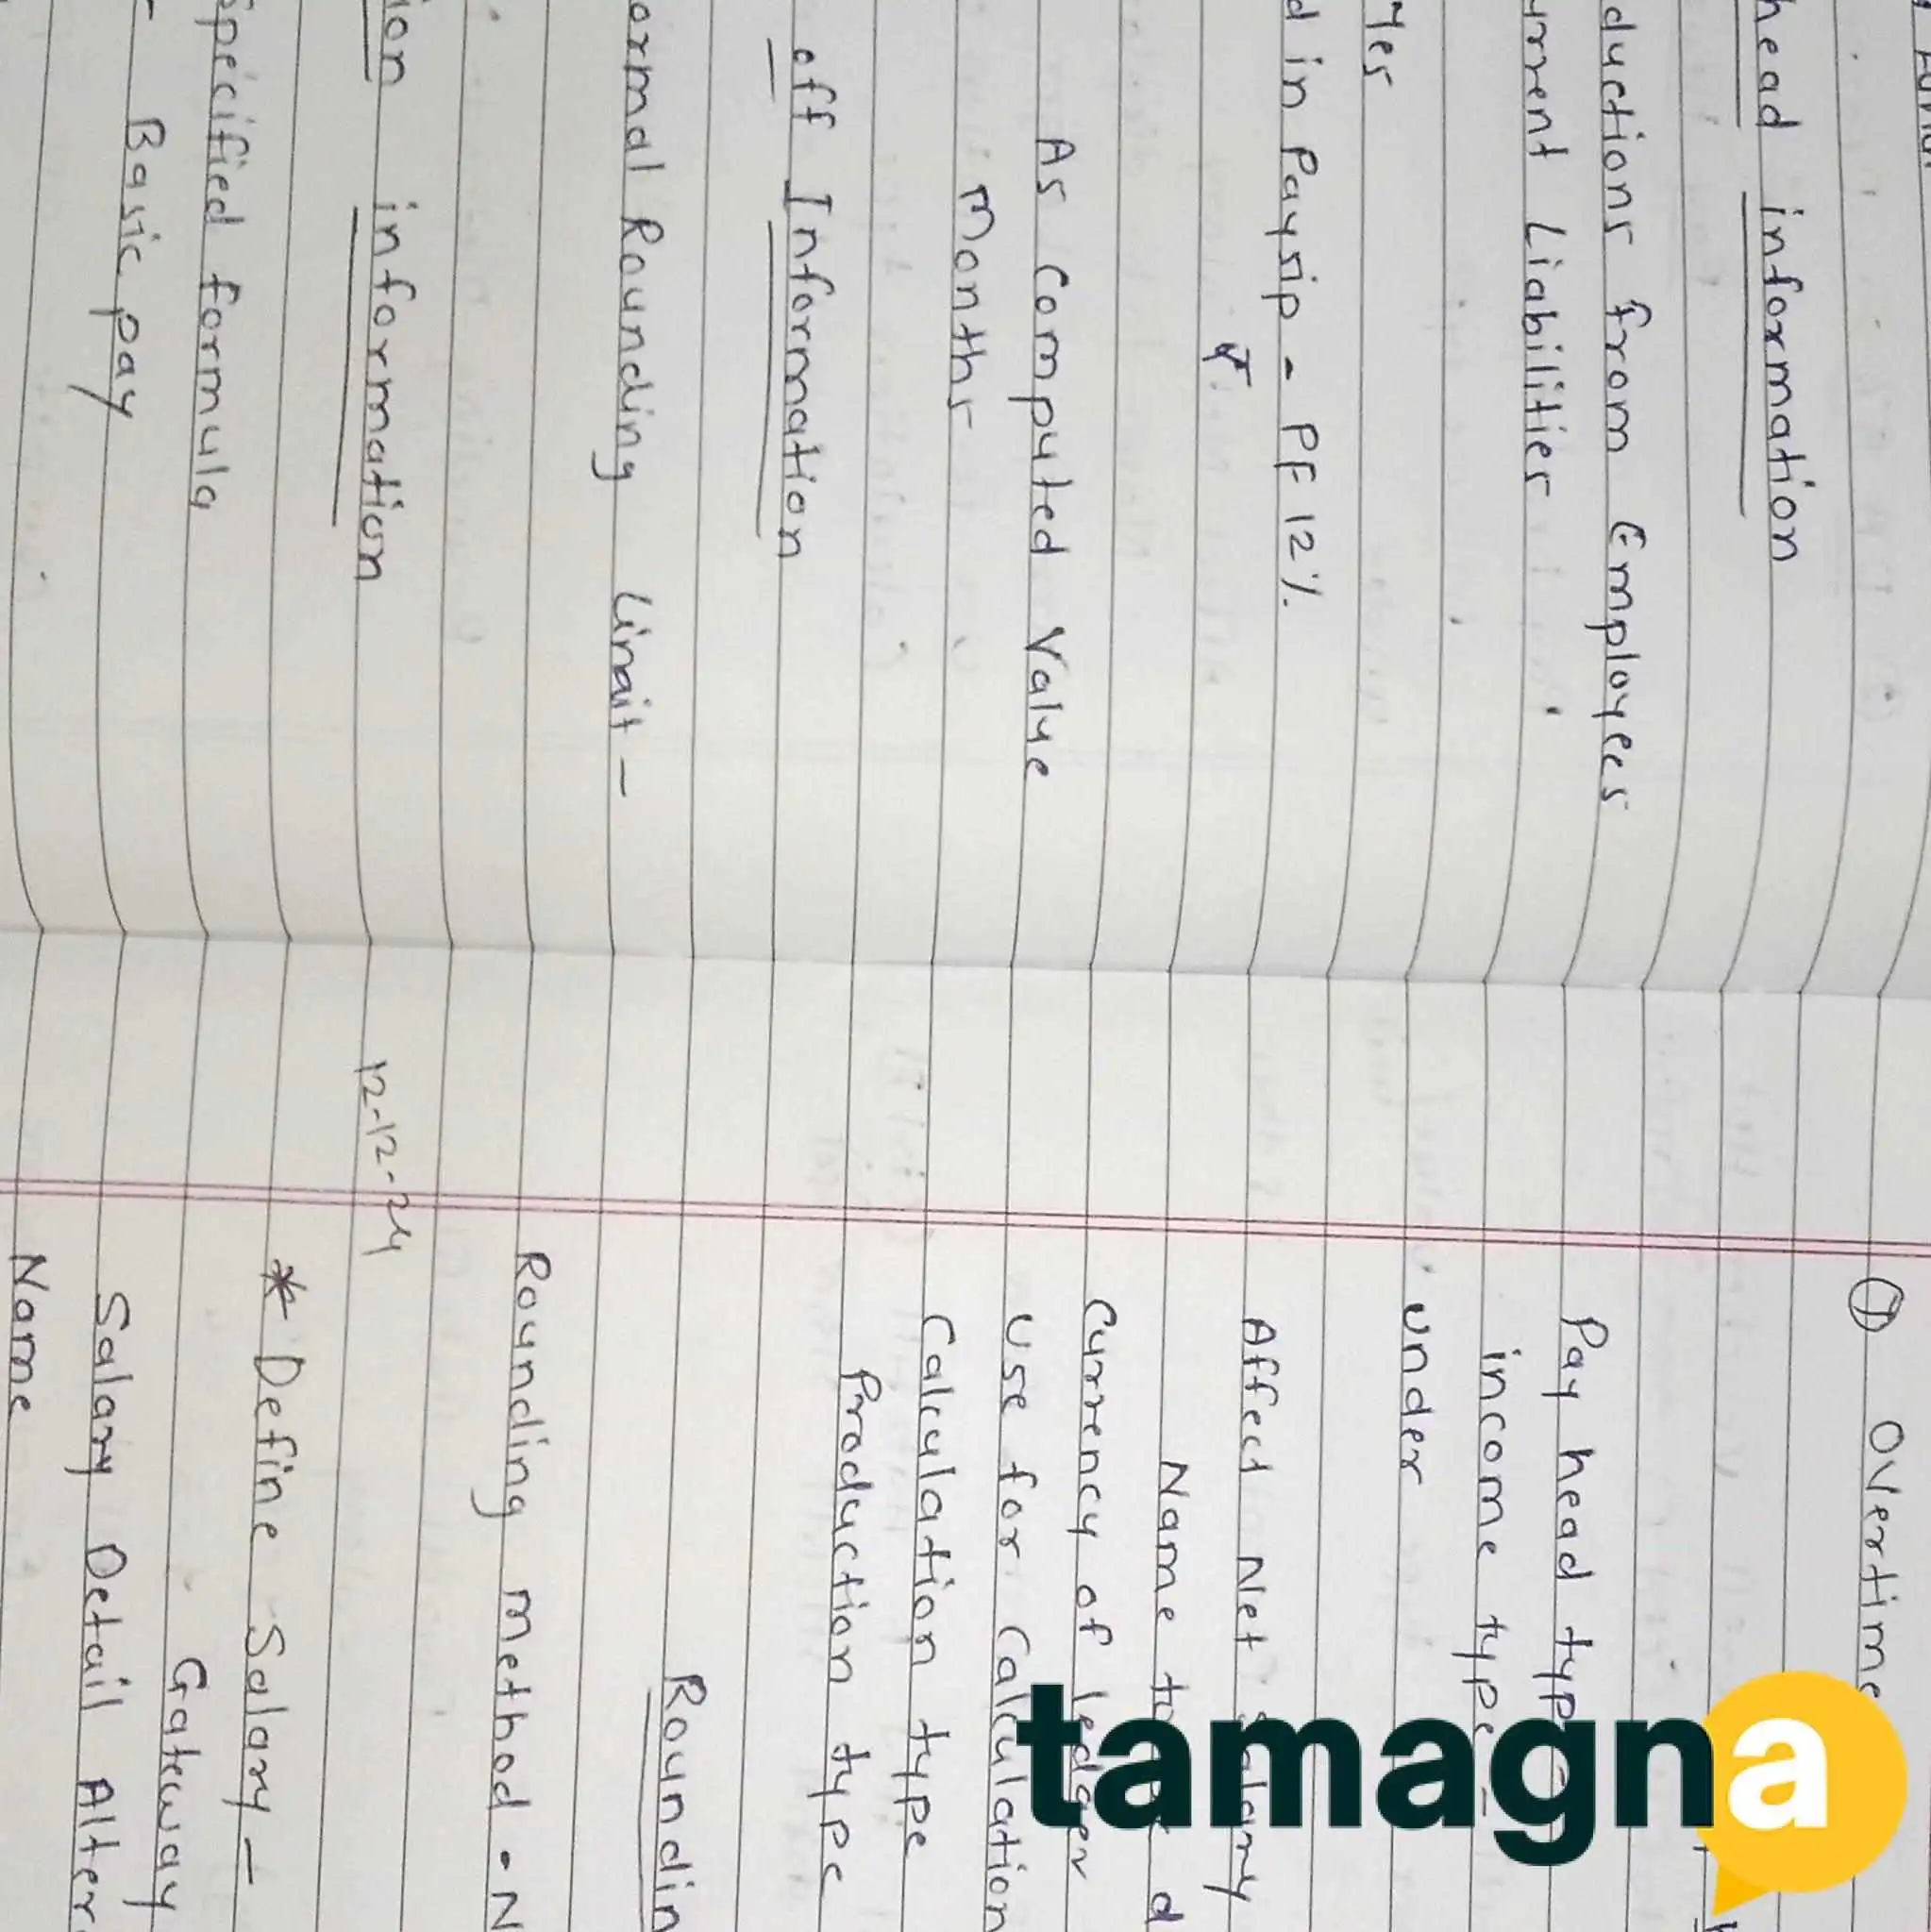 head information
ductions from Employees
urrent Liabilities
Yes
d in Paysip - PF 12%
As Computed Value
Months
off Information
ormal Rounding Limit -
ion information
specified formula
- Basic pay
① Overtime
Pay head typ
income type -
under
Affect Net Salary
Name to d
Currency of ledger
Use for Calculation
Calculation type
Production type
Roundin
Rounding method - N
12-12-24
* Define Salary -
Gateway
Salary Detail Alter
Name
tamagna